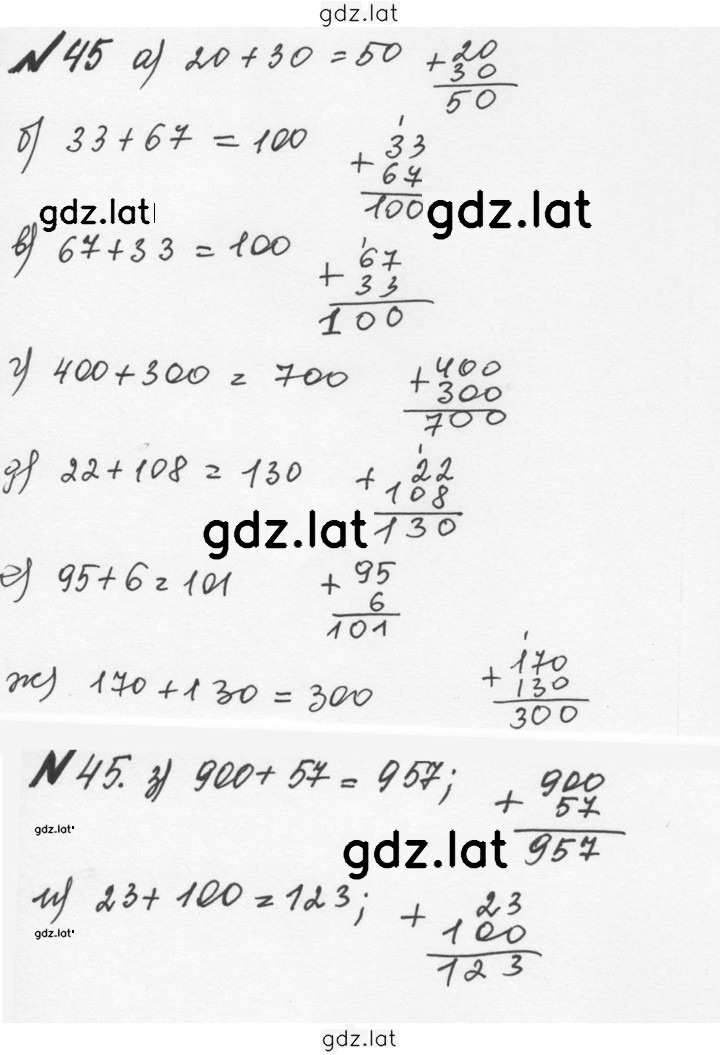 gdz.lat
№45 а) 20+30=50 +20
30
50
б) 33+67=100 1
+33
67
gdz.lat 100 gdz.lat
в) 67+33=100 1
+67
33
100
г) 400+300=700 +400
300
700
д) 22+108=130 1
+22
108
gdz.lat 130
е) 95+6=101 +95
6
101
ж) 170+130=300 1
+170
130
300
№45. з) 900+57=957; +900
57
gdz.lat
gdz.lat 957
и) 23+100=123; +23
gdz.lat 100
123
gdz.lat